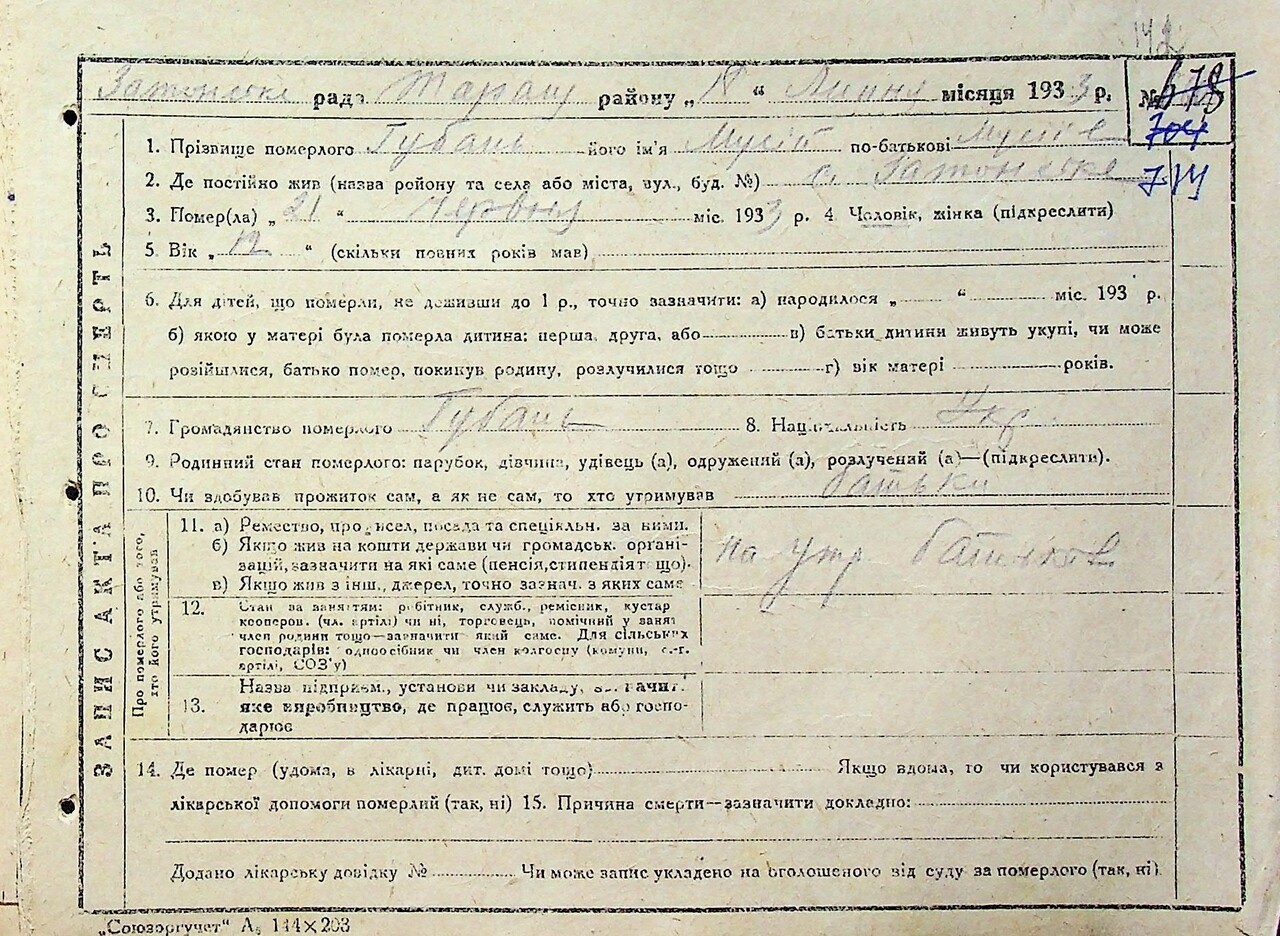 142
Затонське рада район у „18“ Липня місяця 1933 р. № 678
704
1. Прізвище померлого Губань його ім'я Мусій по-батькові Мусіїв
2. Де постійно жив (назва ройону та села або міста, вул., буд. №) с. Затонське 714
3. Помер(ла) „21“ червня міс. 1933 р. 4. Чоловік, жінка (підкреслити)
5. Вік „12“ (скільки повних років мав)
6. Для дітей, що померли, не доживши до 1 р., точно зазначити: а) народилося „ “ міс. 193 р.
б) якою у матері була померла дитина: перша, друга, або в) батьки дитини живуть укупі, чи може
розійшлися, батько помер, покинув родину, розлучилися тощо г) вік матері років.
7. Громадянство померлого Губань 8. Національність Укр
9. Родинний стан померлого: парубок, дівчина, удівець (а), одружений (а), розлучений (а)—(підкреслити).
10. Чи здобував прожиток сам, а як не сам, то хто утримував батьки
ЗАПИС АКТА ПРО СМЕРТЬ
Про померлого або того, хто його утримував
11. а) Ремество, промисел, посада та спеціяльн. за ними.
б) Якщо жив на кошти держави чи громадськ. органі-
зацій, зазначити на які саме (пенсія, стипендія тощо).
в) Якщо жив з інш., джерел, точно зазнач. з яких саме
на утр батьків
12. Стан за занятям: робітник, служб., ремісник, кустар
кооперов. (чл. артілі) чи ні, торговець, помічний у занят
член родини тощо—зазначити який саме. Для сільських
господарів: одноосібник чи член колгоспу (комуни, с.-г.
артілі, СОЗ'у)
13. Назва підприєм., установи чи закладу,
яке виробництво, де працює, служить або госпо-
дарює
14. Де помер (удома, в лікарні, дит. домі тощо) Якщо вдома, то чи користувався з
лікарської допомоги померлий (так, ні) 15. Причина смерти—зазначити докладно:
Додано лікарську довідку № Чи може запис укладено на оголошеного від суду за померлого (так, ні)
„Союзоргучет“ А₅ 144×203